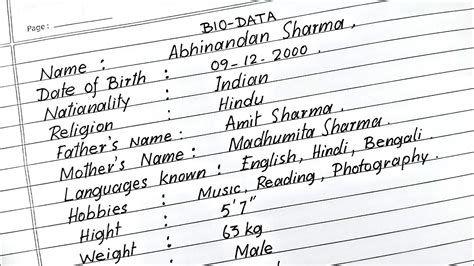 Page :
BIO-DATA
Name : Abhinandan Sharma,
Date of Birth : 09-12-2000.
Natianality : Indian
Religion : Hindu
Father's Name : Amit Sharma.
Mother's Name : Madhumita Sharma.
Languages known : English, Hindi, Bengali
Hobbies : Music, Reading, Photography.
Hight : 5'7"
Weight : 63 kg
Male